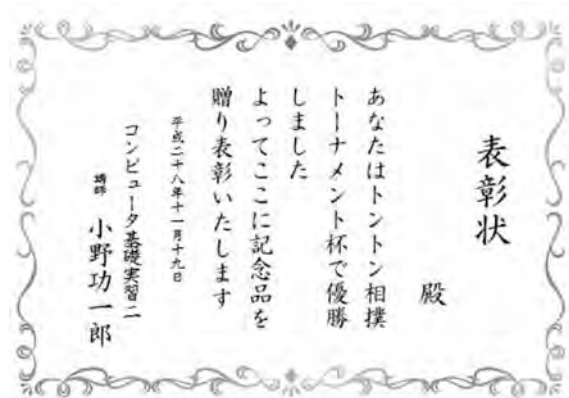 表彰状
殿
あなたはトントン相撲
トーナメント杯で優勝
しました
よってここに記念品を
贈り表彰いたします
平成二十八年十一月十九日
コンピュータ基礎実習二
講師 小野功一郎